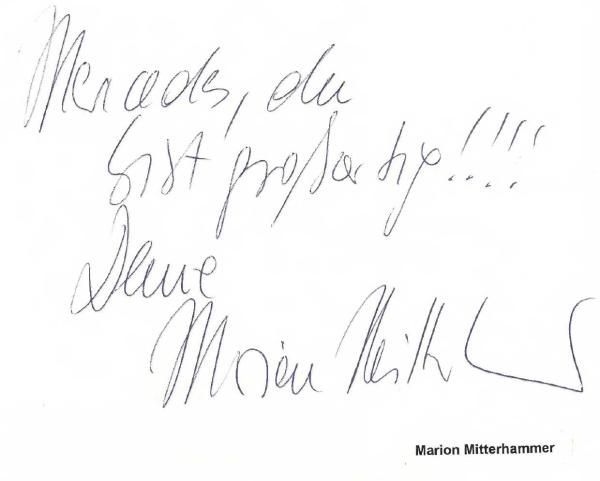 Mercedes, du
bist großartig!!!!
Deine
Marion Mitterhammer
Marion Mitterhammer